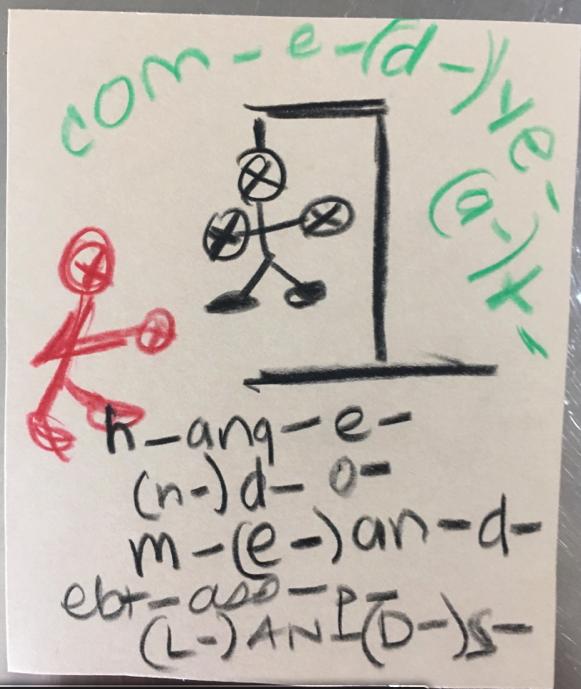 com-e-(d-)ye-
(a-)x-
h-ang-e-
(n-)d- o-
m-(e-)an-d-
ebt-ass-P-
(L-)ANI(D-)S-